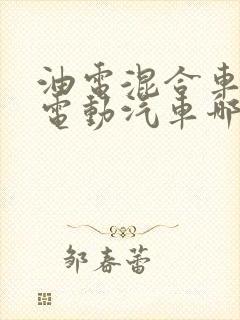 油電混合車
電動汽車哪
邹春蕾